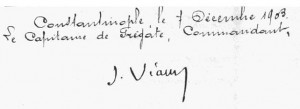 Constantinople, le 7 Décembre 1903.
Le Capitaine de Frégate, Commandant,
J. Viaud